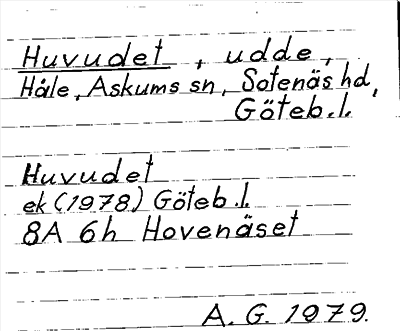 Huvudet, udde,
Håle, Askums sn, Sotenäs hd,
Göteb.l.
Huvudet
ek (1978) Göteb.l.
8A 6h Hovenäset
A. G. 1979.